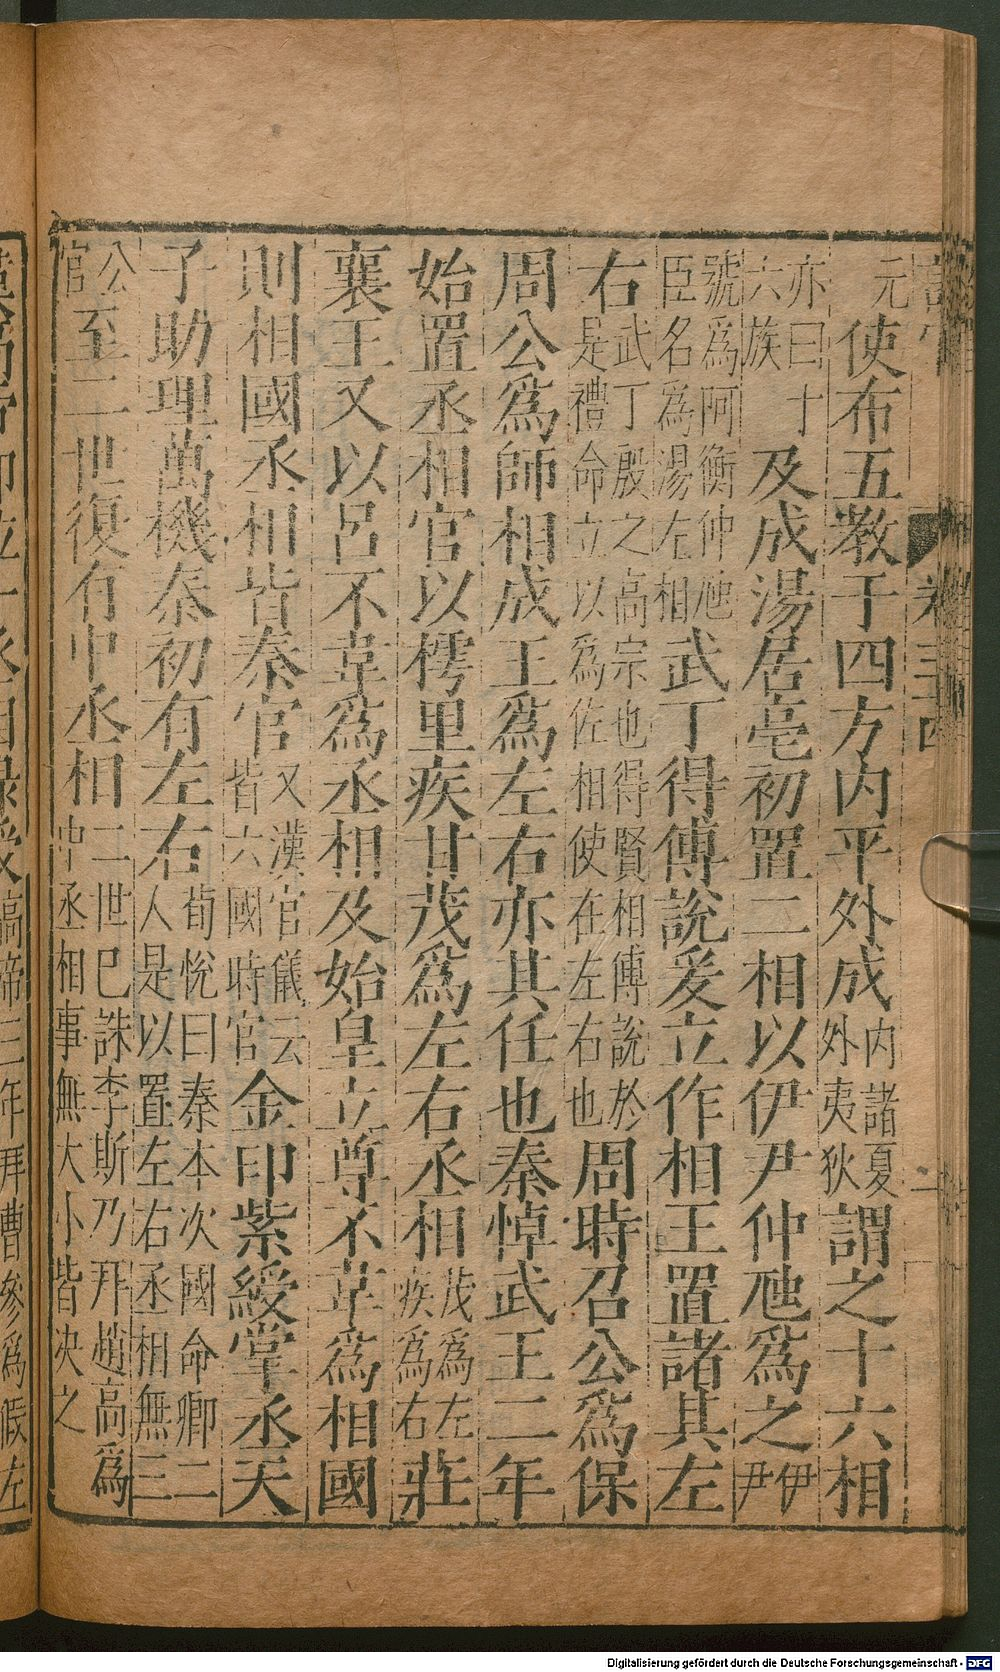 元使布五教于四方内平外成内諸夏外夷狄謂之十六相
亦曰十六族及成湯居亳初置二相以伊尹仲虺爲之伊尹
號爲阿衡仲虺臣名爲湯左相武丁得傅說爰立作相王置諸其左
右武丁殷之高宗也得賢相傅說於是禮命立以爲佐相使在左右也周時召公爲保
周公爲師相成王爲左右亦其任也秦悼武王二年
始置丞相官以樗里疾甘茂爲左右丞相茂爲左疾爲右莊
襄王又以呂不韋爲丞相及始皇立尊不韋爲相國
則相國丞相皆秦官又漢官儀云皆六國時官金印紫綬掌丞天
子助理萬機秦初有左右荀悅曰秦本次國命卿二人是以置左右丞相無三
公官至二世復有中丞相二世已誅李斯乃拜趙高爲中丞相事無大小皆决之
高帝
丞相
三年拜曹參爲假左
Digitalisierung gefördert durch die Deutsche Forschungsgemeinschaft - DFG